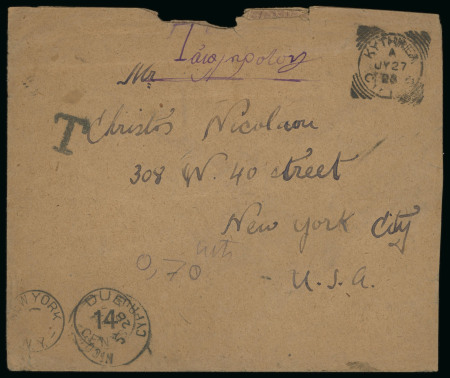 Ταχυδρομικόν
Mr
T Christos Nicolaou
308 W. 40 street
New York City
0,70
U.S.A.
KYTHREA
A
JY 27
28
NEW YORK
N.Y.
DUE
14
CENTS
CYPRUS